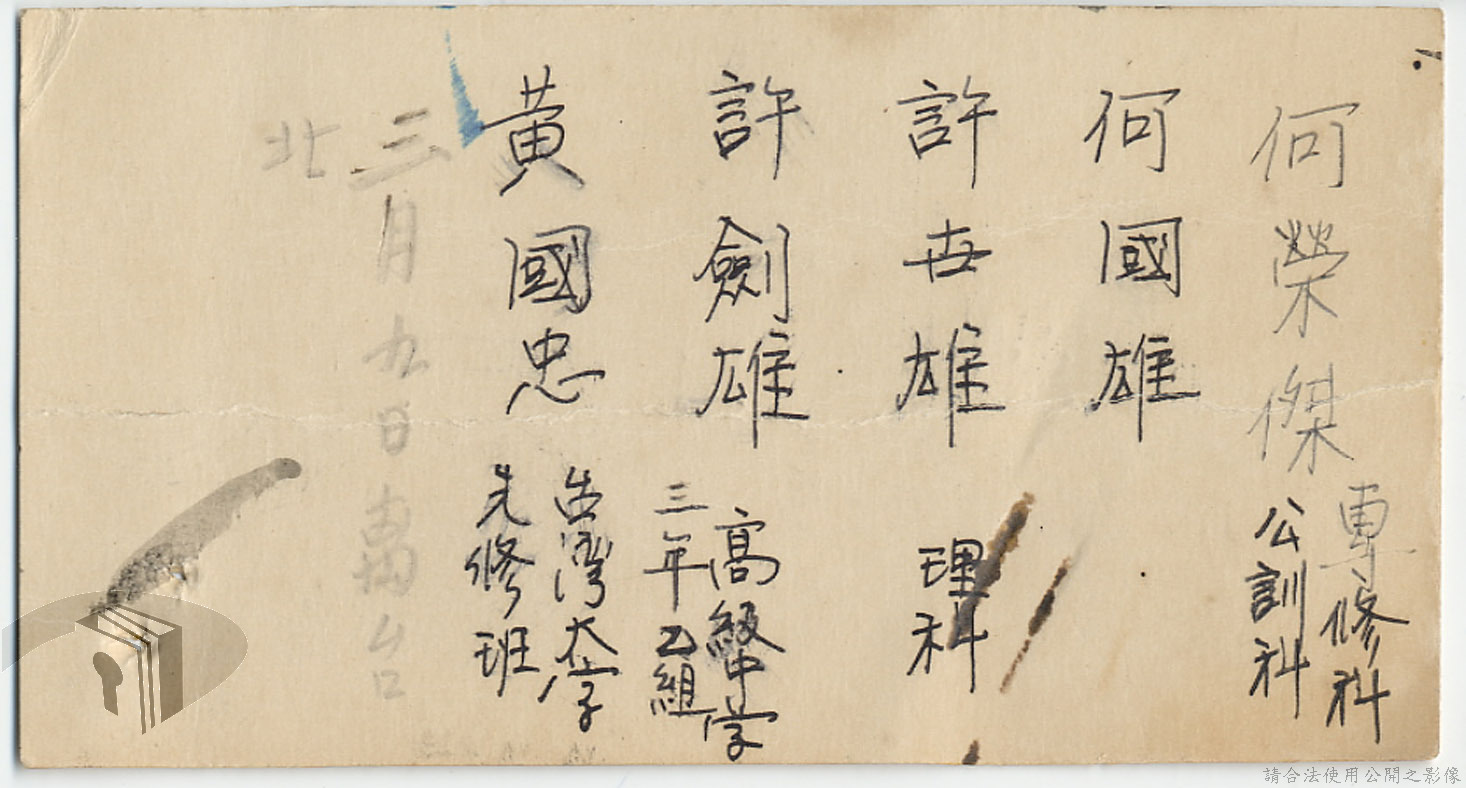 何榮傑
專修科
公訓科
何國雄
許世雄
理科
許劍雄
高級中学
三年乙組
黃國忠
台湾大学
先修班
三月九日
北
請合法使用公開之影像